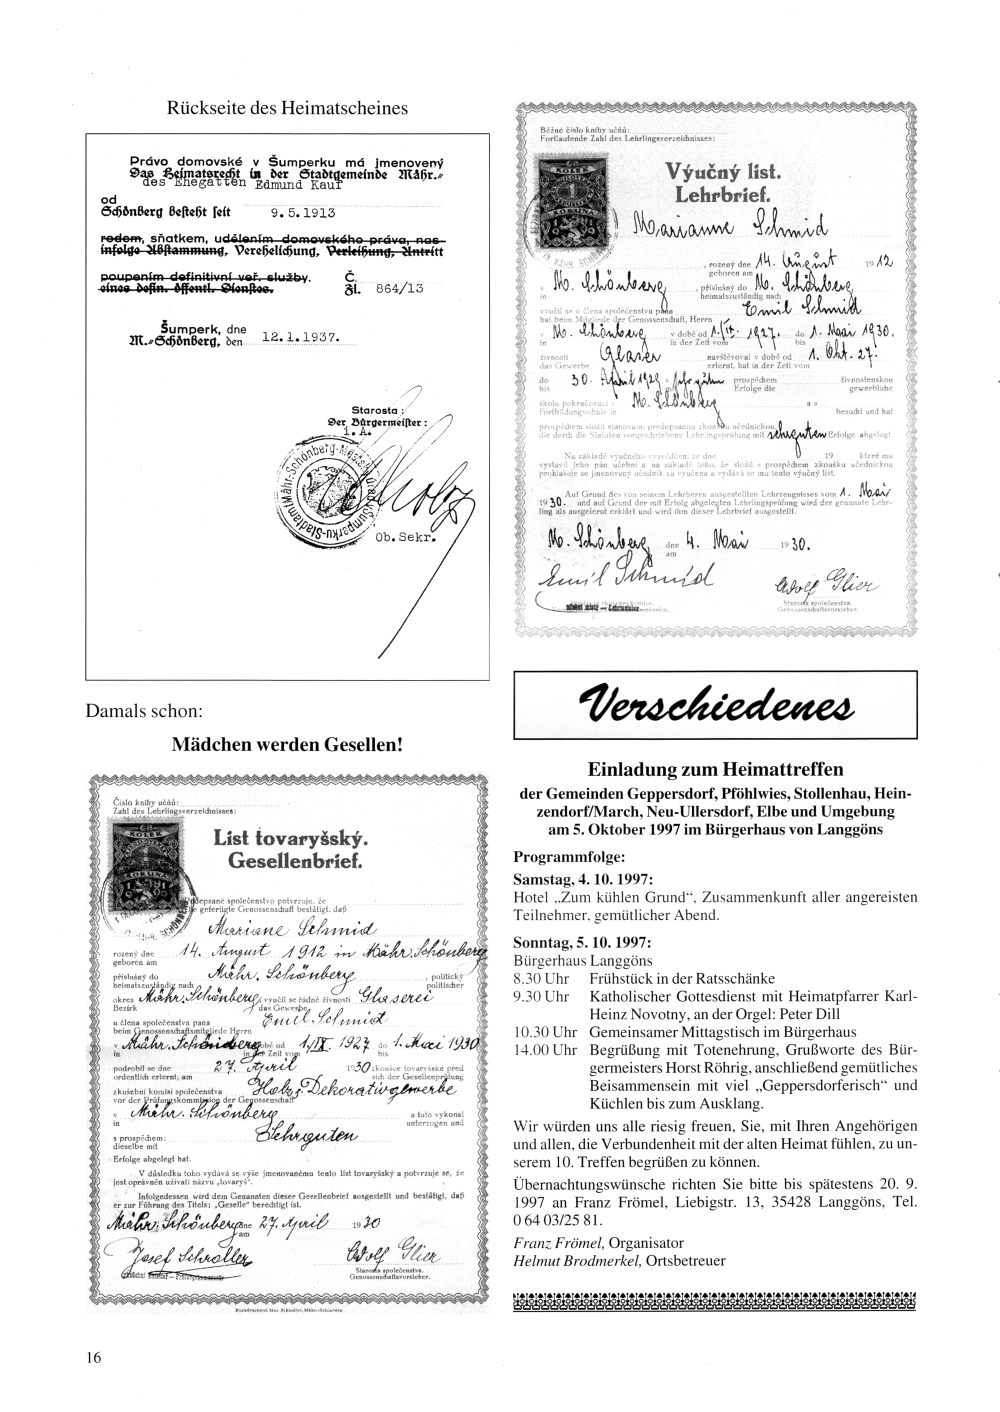 Rückseite des Heimatscheines
Právo domovské v Šumperku má jmenovený
Das Heimatsrecht in der Stadtgemeinde Mähr.-
des Ehegatten Edmund Kauf
od
Schönberg besteht seit 9.5.1913
rodem, sňatkem, udělením domovského práva, nas-
infolge Abstammung, Verehelichung, Verleihung, Antritt
poupením definitivní veř. služby. Č.
eines defin. öffentl. Dienstes. Zl. 864/13
Šumperk, dne
M.-Schönberg, den 12.1.1937.
Starosta:
Der Bürgermeister:
I.A.
Ob. Sekr.
Damals schon:
Mädchen werden Gesellen!
Číslo knihy učňů:
Zahl des Lehrlingsverzeichnisses:
KOLEK
1
KORUNA
List tovaryšský.
Gesellenbrief.
depsané společenstvo potvrzuje, že
ie gefertigte Genossenschaft bestätigt, daß
Mariane Schmid
rozený dne 14. August 1912 in Mähr. Schönberg
geboren am
příslušný do Mähr. Schönberg, politický
heimatszuständig nach politischer
okres Mähr. Schönberg, vyučil se řádně živnosti Glaserei
Bezirk das Gewerbe
u člena společenstva pana Emil Schmidt
beim Genossenschaftsmitgliede Herrn
v Mähr. Schönberg v době od 1./IX. 1927 do 1. Mai 1930
in in der Zeit vom bis
podrobil se dne 27. April 1930 zkoušce tovaryšské před
ordentlich erlernt, am sich der Gesellenprüfung
zkušební komisí společenstva Holz- Dekorativgewerbe
vor der Prüfungskommission der Genossenschaft
v Mähr. Schönberg a tuto vykonal
in unterzogen und
s prospěchem: Sehrguten
dieselbe mit
Erfolge abgelegt hat.
V důsledku toho vydává se výše jmenovanému tento list tovaryšský a potvrzuje se, že
jest oprávněn užívati názvu „tovaryš“.
Infolgedessen wird dem Genannten dieser Gesellenbrief ausgestellt und bestätigt, daß
er zur Führung des Titels: „Geselle“ berechtigt ist.
Mähr. Schönberg dne 27. April 1930
am
Josef Schroller Adolf Glier
Starosta společenstva.
Genossenschaftsvorsteher.
Buchdruckerei Max Schindler, Mähr.-Schönberg
16
Běžné číslo knihy učňů:
Fortlaufende Zahl des Lehrlingsverzeichnisses:
KOLEK
1
KORUNA
Výučný list.
Lehrbrief.
Marianne Schmid
, rozený dne 14. August 1912
geboren am
v M. Schönberg, příslušný do M. Schönberg
in heimatszuständig nach
vyučil se u člena společenstva pana Emil Schmid
hat beim Mitgliede der Genossenschaft, Herrn
v M. Schönberg v době od 1./IX. 1927. do 1. Mai 1930.
in in der Zeit vom bis
živnosti Glaser navštěvoval v době od 1. Okt. 27.
das Gewerbe erlernt, hat in der Zeit vom
do 30. April 1929 s sehr gutem prospěchem živnostenskou
bis Erfolge die gewerbliche
školu pokračovací v M. Schönberg a s
Fortbildungsschule in besucht und hat
prospěchem složil stanovami předepsanou zkoušku učednickou.
die durch die Statuten vorgeschriebene Lehrlingsprüfung mit sehrguten Erfolge abgelegt.
Na základě výučného vysvědčení ze dne 19 které mu
vystavil jeho pán učební a na základě toho, že složil s prospěchem zkoušku učednickou
prohlašuje se jmenovaný učedník za vyučena a vydává se mu tento výučný list.
Auf Grund des von seinem Lehrherrn ausgestellten Lehrzeugnisses vom 1. Mai
1930. und auf Grund der mit Erfolg abgelegten Lehrlingsprüfung wird der genannte Lehr-
ling als ausgelernt erklärt und wird ihm dieser Lehrbrief ausgestellt.
M. Schönberg dne 4. Mai 1930.
am
Emil Schmid Adolf Glier
Starosta společenstva.
Genossenschaftsvorsteher.
Verschiedenes
Einladung zum Heimattreffen
der Gemeinden Geppersdorf, Pföhlwies, Stollenhau, Hein-
zendorf/March, Neu-Ullersdorf, Elbe und Umgebung
am 5. Oktober 1997 im Bürgerhaus von Langgöns
Programmfolge:
Samstag, 4. 10. 1997:
Hotel „Zum kühlen Grund“, Zusammenkunft aller angereisten
Teilnehmer, gemütlicher Abend.
Sonntag, 5. 10. 1997:
Bürgerhaus Langgöns
8.30 Uhr Frühstück in der Ratsschänke
9.30 Uhr Katholischer Gottesdienst mit Heimatpfarrer Karl-
Heinz Novotny, an der Orgel: Peter Dill
10.30 Uhr Gemeinsamer Mittagstisch im Bürgerhaus
14.00 Uhr Begrüßung mit Totenehrung, Grußworte des Bür-
germeisters Horst Röhrig, anschließend gemütliches
Beisammensein mit viel „Geppersdorferisch“ und
Küchlen bis zum Ausklang.
Wir würden uns alle riesig freuen, Sie, mit Ihren Angehörigen
und allen, die Verbundenheit mit der alten Heimat fühlen, zu un-
serem 10. Treffen begrüßen zu können.
Übernachtungswünsche richten Sie bitte bis spätestens 20. 9.
1997 an Franz Frömel, Liebigstr. 13, 35428 Langgöns, Tel.
0 64 03/25 81.
Franz Frömel, Organisator
Helmut Brodmerkel, Ortsbetreuer